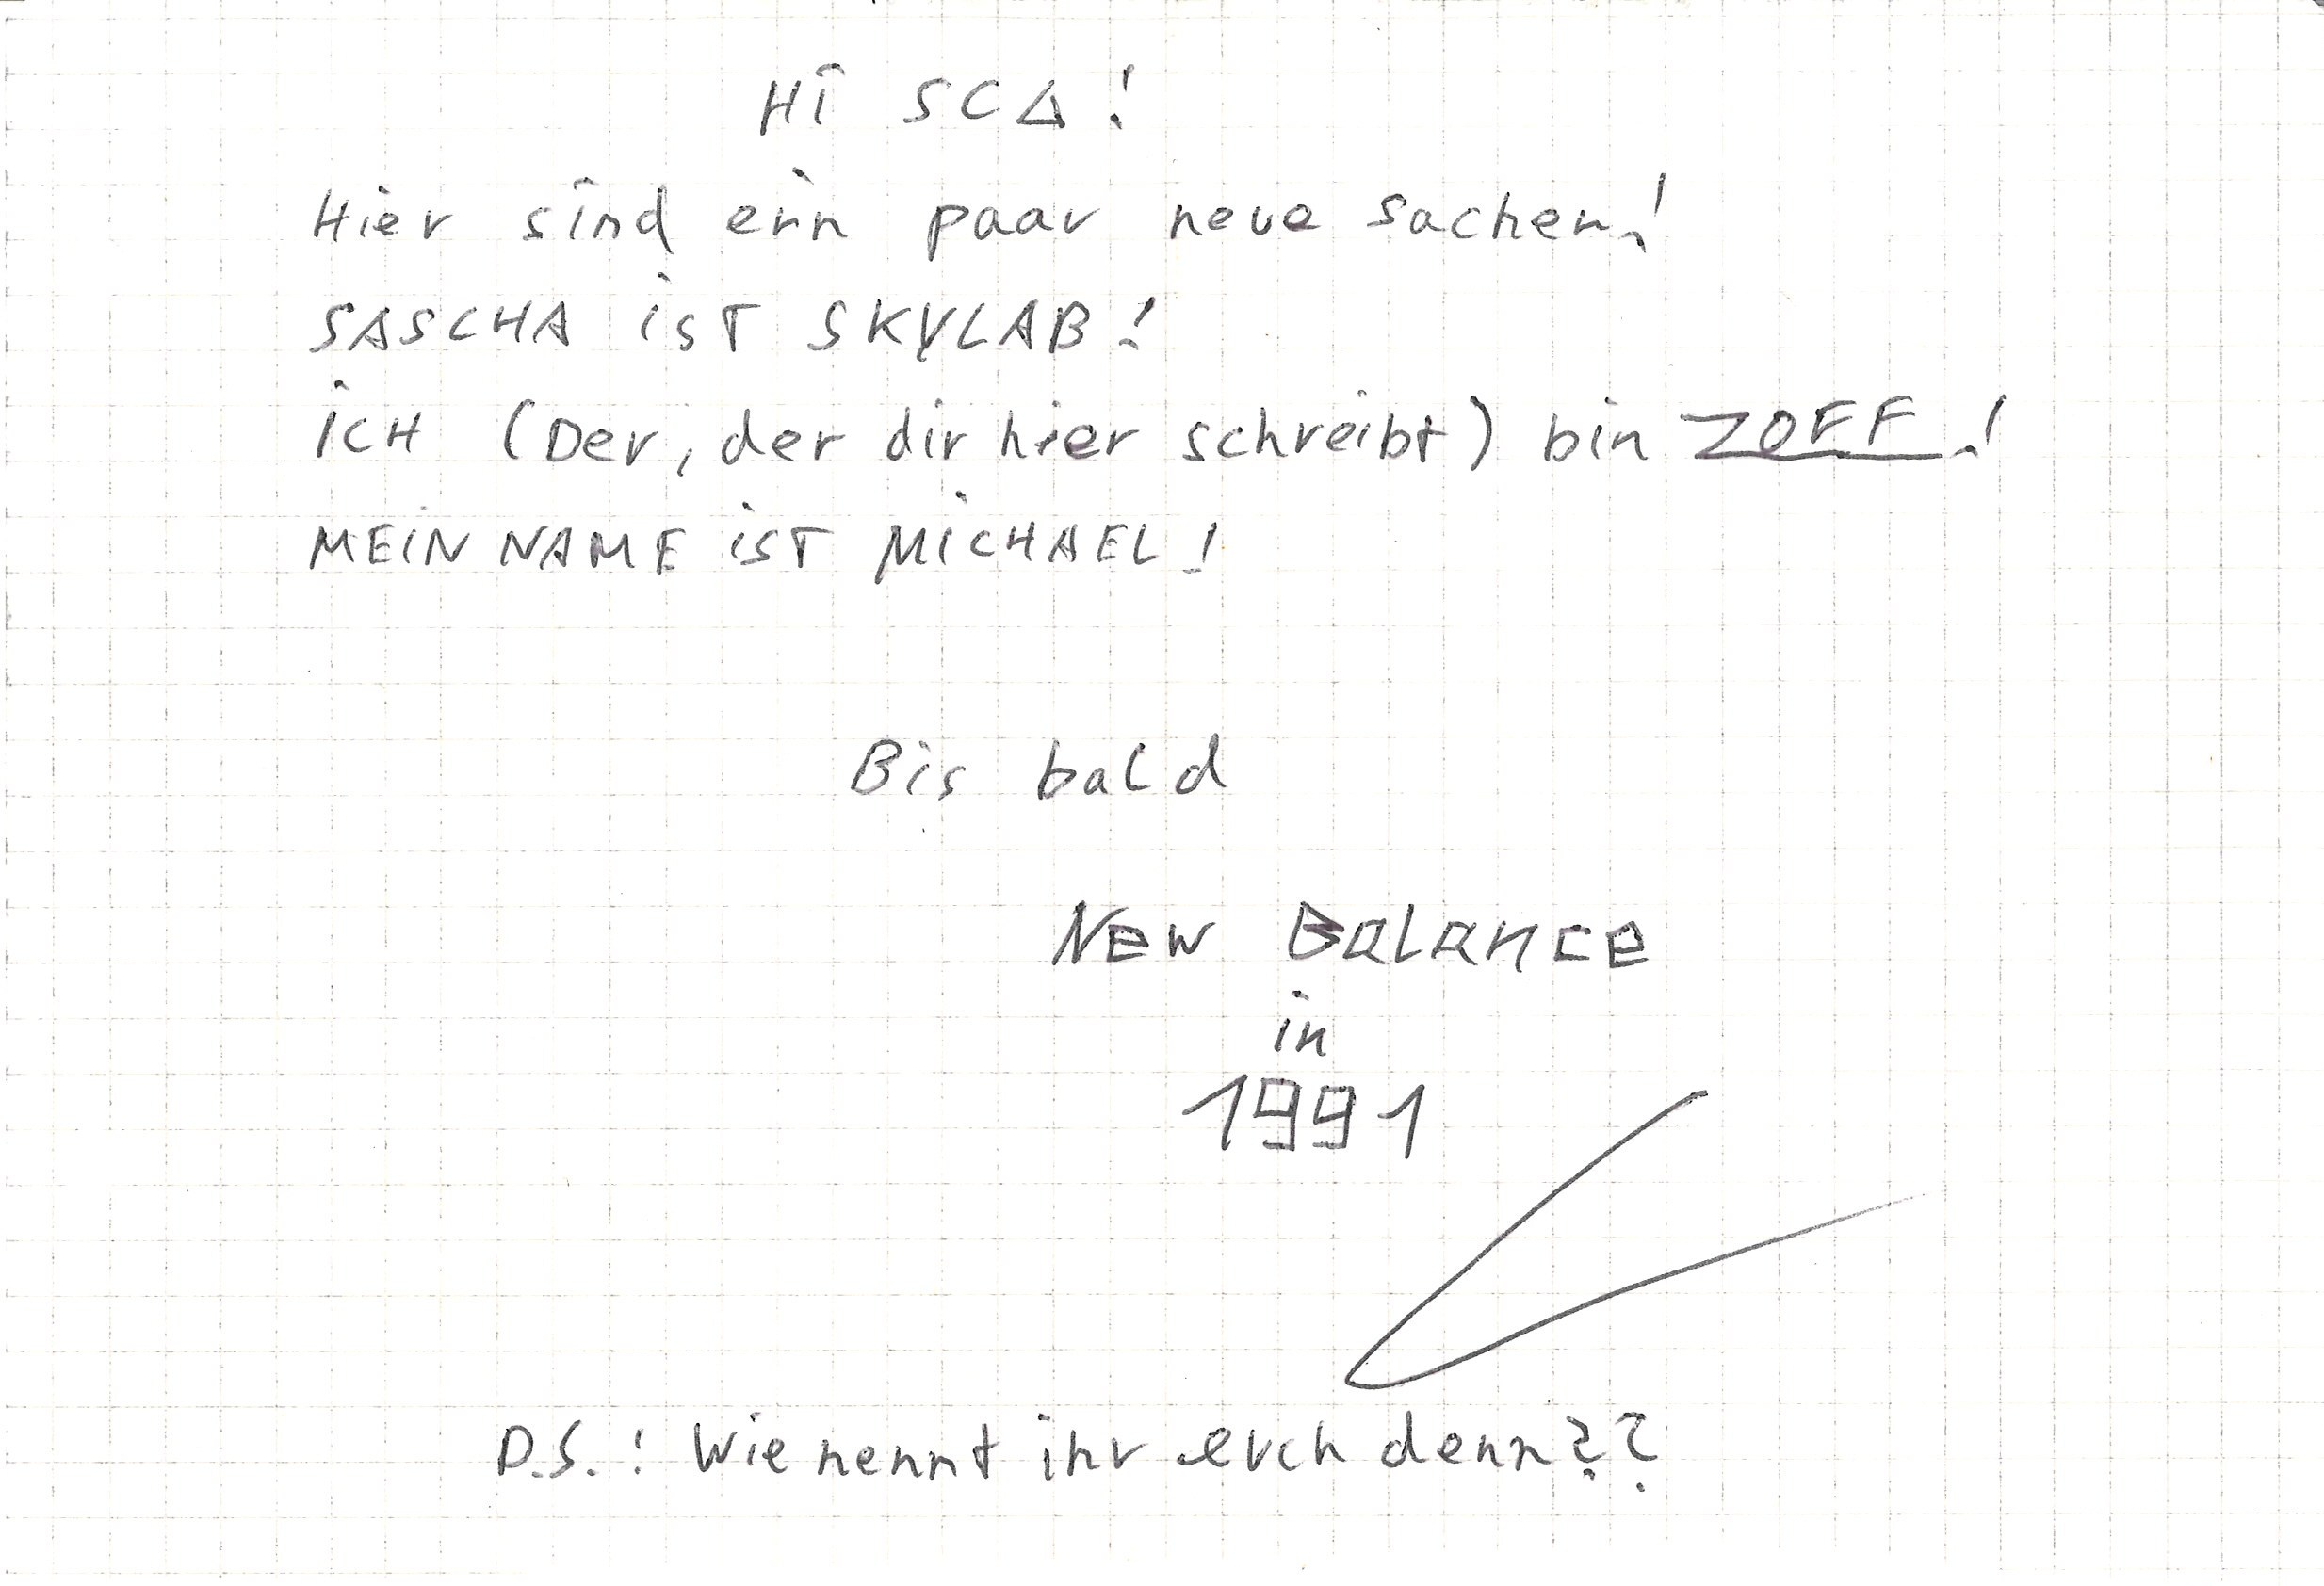 Hi SCA!
Hier sind ein paar neue sachen!
SASCHA iST SKYLAB!
iCH (Der, der dir hier schreibt) bin ZOFF!
MEiN NAME iST MiCHAEL!
Bis bald
New Balance
in
1991
P.S.: Wie nennt ihr euch denn??